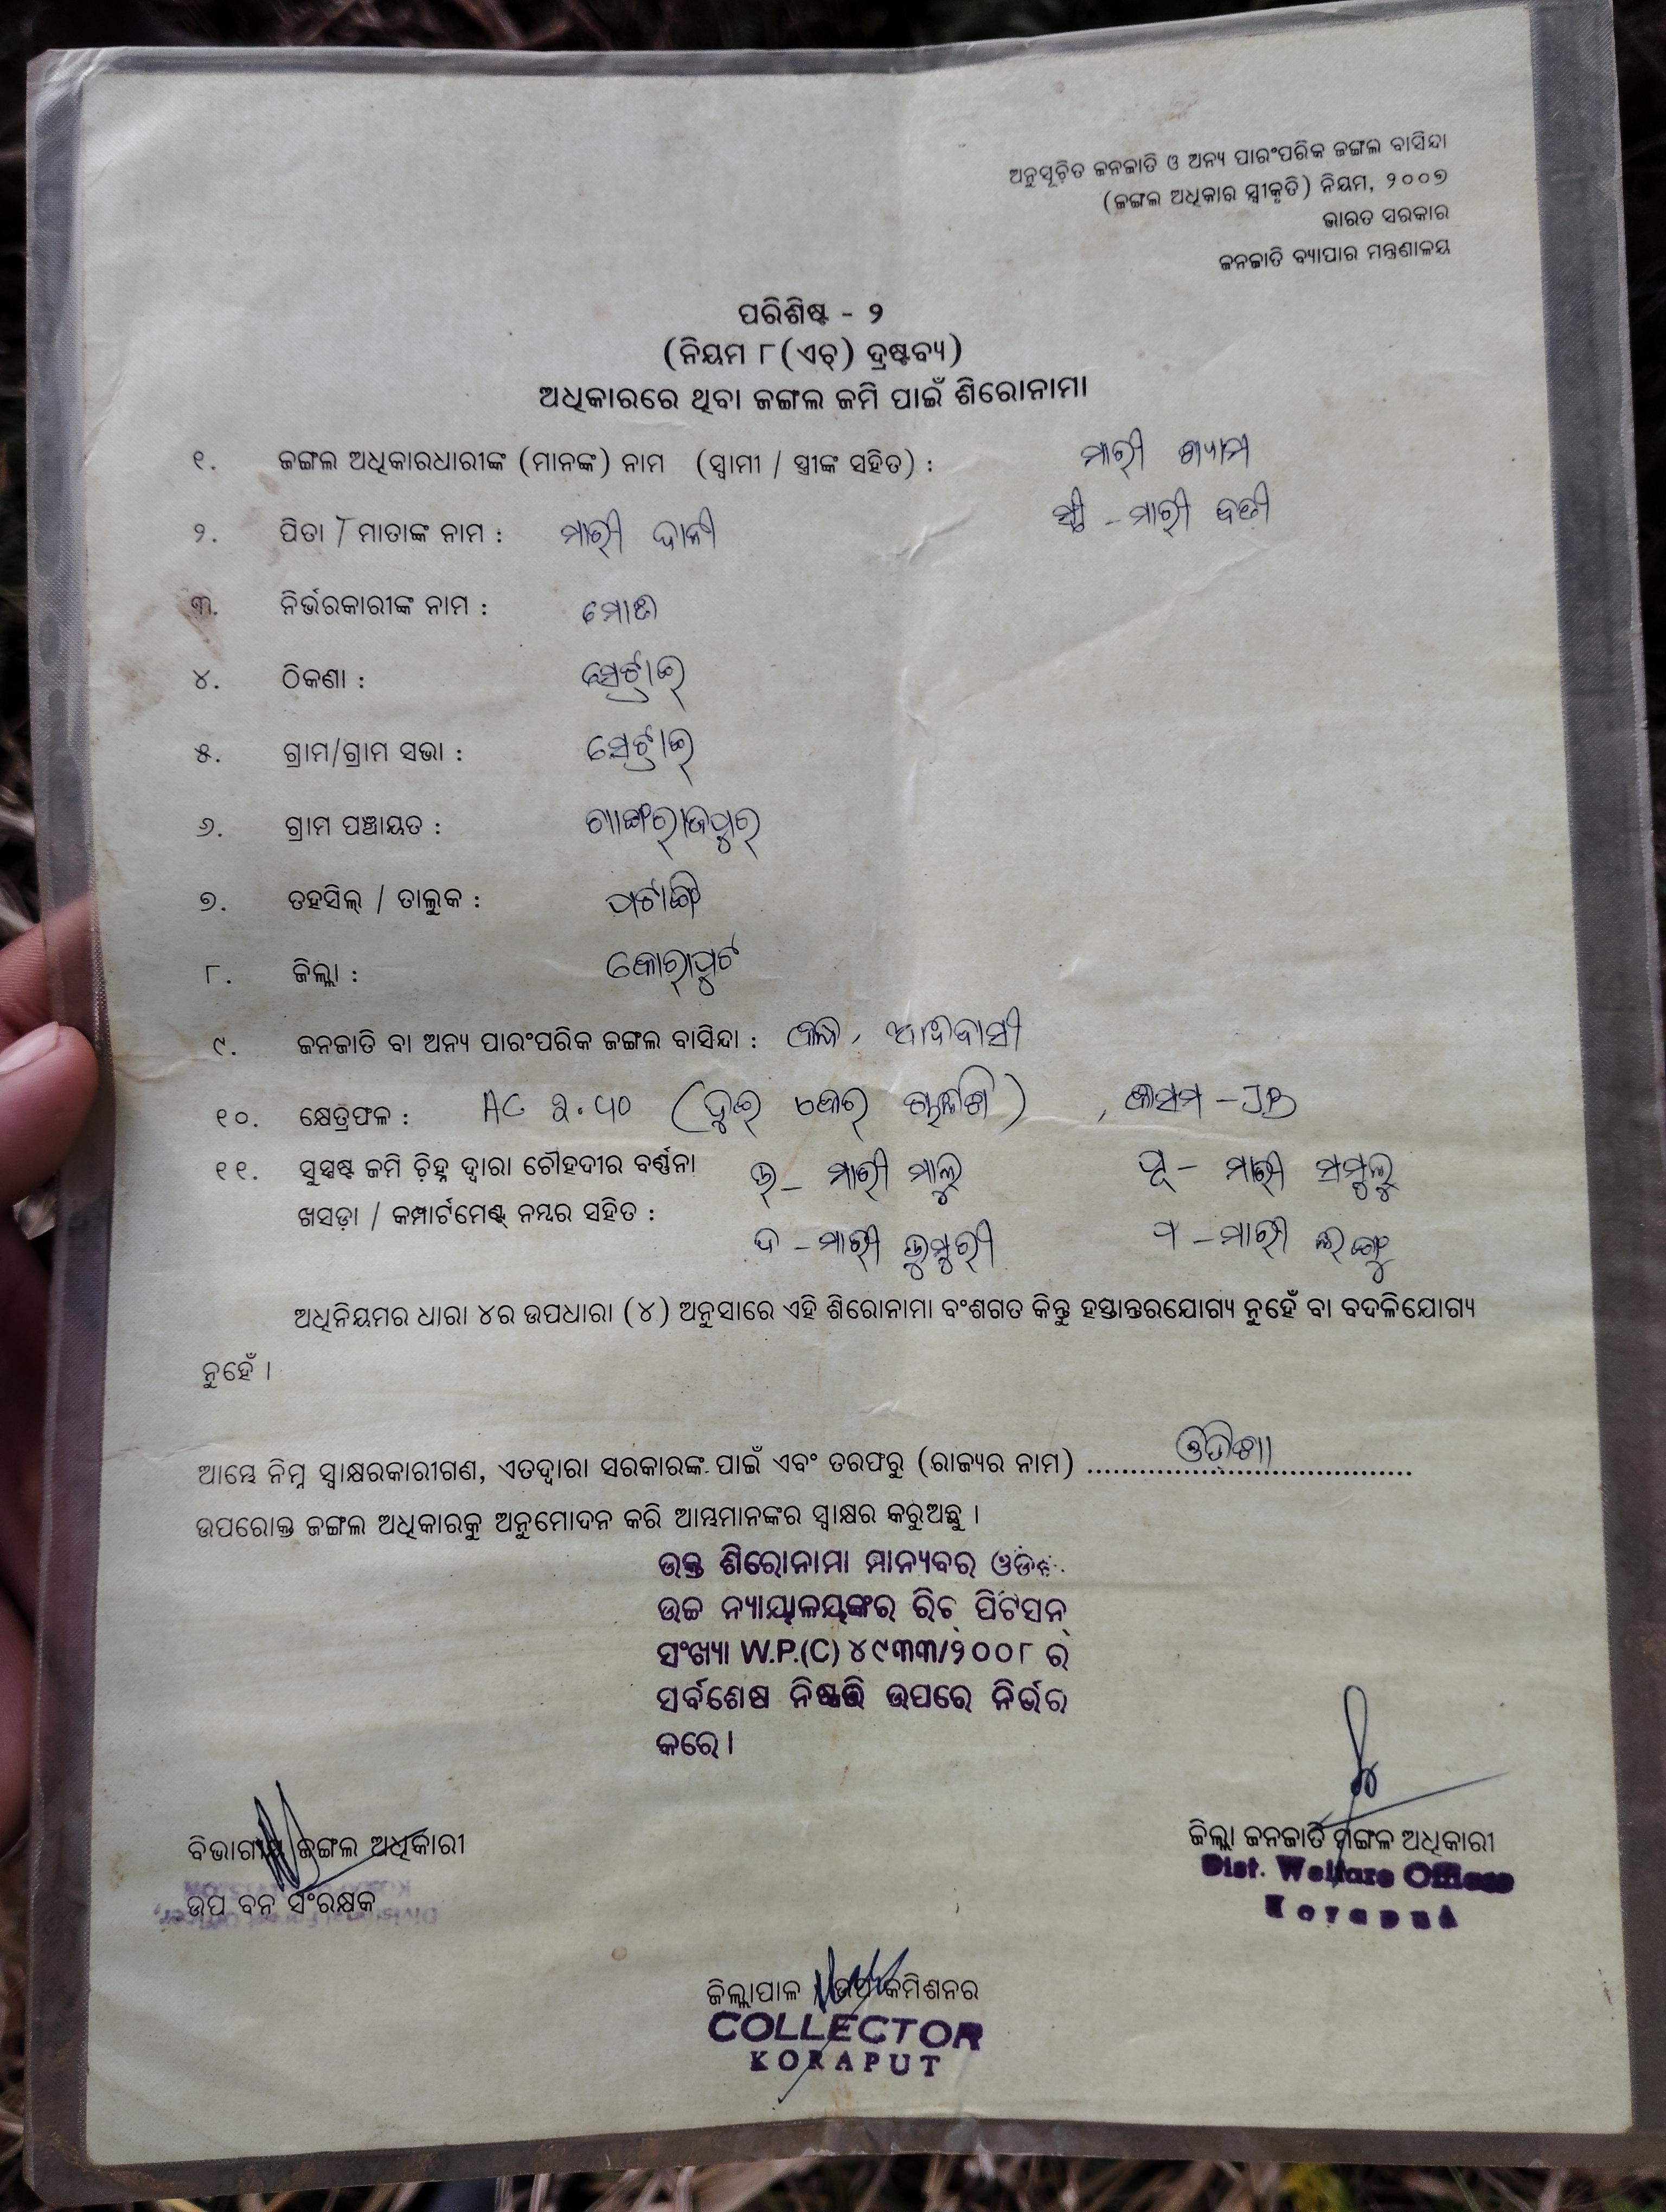 ଅନୁସୂଚିତ ଜନଜାତି ଓ ଅନ୍ୟ ପାରଂପରିକ ଜଙ୍ଗଲ ବାସିନ୍ଦା
(ଜଙ୍ଗଲ ଅଧିକାର ସ୍ୱୀକୃତି) ନିୟମ, ୨୦୦୭
ଭାରତ ସରକାର
ଜନଜାତି ବ୍ୟାପାର ମନ୍ତ୍ରଣାଳୟ
ପରିଶିଷ୍ଟ - ୨
(ନିୟମ ୮(ଏଚ୍) ଦ୍ରଷ୍ଟବ୍ୟ)
ଅଧିକାରରେ ଥିବା ଜଙ୍ଗଲ ଜମି ପାଇଁ ଶିରୋନାମା
୧. ଜଙ୍ଗଲ ଅଧିକାରଧାରୀଙ୍କ (ମାନଙ୍କ) ନାମ (ସ୍ୱାମୀ / ସ୍ତ୍ରୀଙ୍କ ସହିତ) : ମାରୀ ଶ୍ୟାମ
ସ୍ତ୍ରୀ - ମାରୀ
୨. ପିତା / ମାତାଙ୍କ ନାମ : ମାରୀ
୩. ନିର୍ଭରକାରୀଙ୍କ ନାମ :
୪. ଠିକଣା :
୫. ଗ୍ରାମ/ଗ୍ରାମ ସଭା :
୬. ଗ୍ରାମ ପଞ୍ଚାୟତ : ଗାଙ୍ଗରାଜପୁର
୭. ତହସିଲ୍ / ତାଲୁକ : ପଟାଙ୍ଗି
୮. ଜିଲ୍ଲା : କୋରାପୁଟ
୯. ଜନଜାତି ବା ଅନ୍ୟ ପାରଂପରିକ ଜଙ୍ଗଲ ବାସିନ୍ଦା : ଆଦିବାସୀ
୧୦. କ୍ଷେତ୍ରଫଳ : AC ୨.୪୦ (ଦୁଇ ଚାଳିଶି), କିସମ - JB
୧୧. ସୁସ୍ପଷ୍ଟ ଜମି ଚିହ୍ନ ଦ୍ୱାରା ଚୌହଦୀର ବର୍ଣ୍ଣନା ଉ - ମାରୀ ମାଲୁ ପୂ - ମାରୀ
ଖସଡ଼ା / କମ୍ପାର୍ଟମେଣ୍ଟ୍ ନମ୍ବର ସହିତ : ଦ - ମାରୀ ପ - ମାରୀ
ଅଧିନିୟମର ଧାରା ୪ର ଉପଧାରା (୪) ଅନୁସାରେ ଏହି ଶିରୋନାମା ବଂଶଗତ କିନ୍ତୁ ହସ୍ତାନ୍ତରଯୋଗ୍ୟ ନୁହେଁ ବା ବଦଳିଯୋଗ୍ୟ
ନୁହେଁ ।
ଆମ୍ଭେ ନିମ୍ନ ସ୍ୱାକ୍ଷରକାରୀଗଣ, ଏତଦ୍ୱାରା ସରକାରଙ୍କ ପାଇଁ ଏବଂ ତରଫରୁ (ରାଜ୍ୟର ନାମ) ଓଡିଶା
ଉପରୋକ୍ତ ଜଙ୍ଗଲ ଅଧିକାରକୁ ଅନୁମୋଦନ କରି ଆମ୍ଭମାନଙ୍କର ସ୍ୱାକ୍ଷର କରୁଅଛୁ ।
ଉକ୍ତ ଶିରୋନାମା ମାନ୍ୟବର
ଉଚ୍ଚ ନ୍ୟାୟାଳୟଙ୍କର ରିଟ୍ ପିଟିସନ୍
ସଂଖ୍ୟା W.P.(C) ୪୯୩୩/୨୦୦୮ ର
ସର୍ବଶେଷ ନିଷ୍ପତ୍ତି ଉପରେ ନିର୍ଭର
କରେ।
ବିଭାଗୀୟ ଜଙ୍ଗଲ ଅଧିକାରୀ
ଉପ ବନ ସଂରକ୍ଷକ
ଜିଲ୍ଲା ଜନଜାତି ମଙ୍ଗଳ ଅଧିକାରୀ
Dist. Welfare Officer
Koraput
ଜିଲ୍ଲାପାଳ / ଉପ କମିଶନର
COLLECTOR
KORAPUT